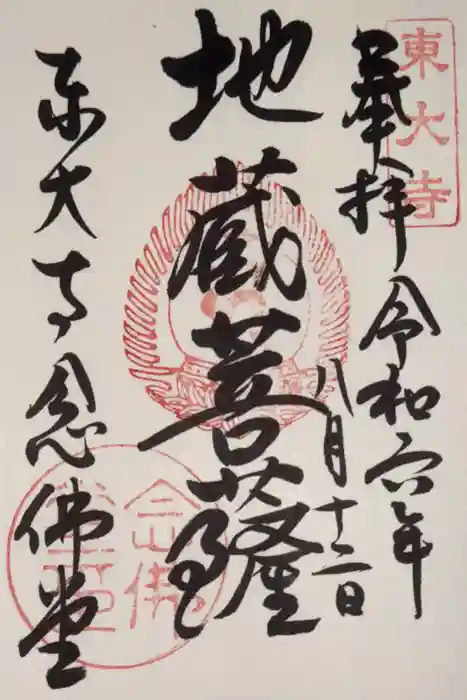 東大寺
奉拝
令和六年
八月十二日
地蔵菩薩
東大寺念佛堂